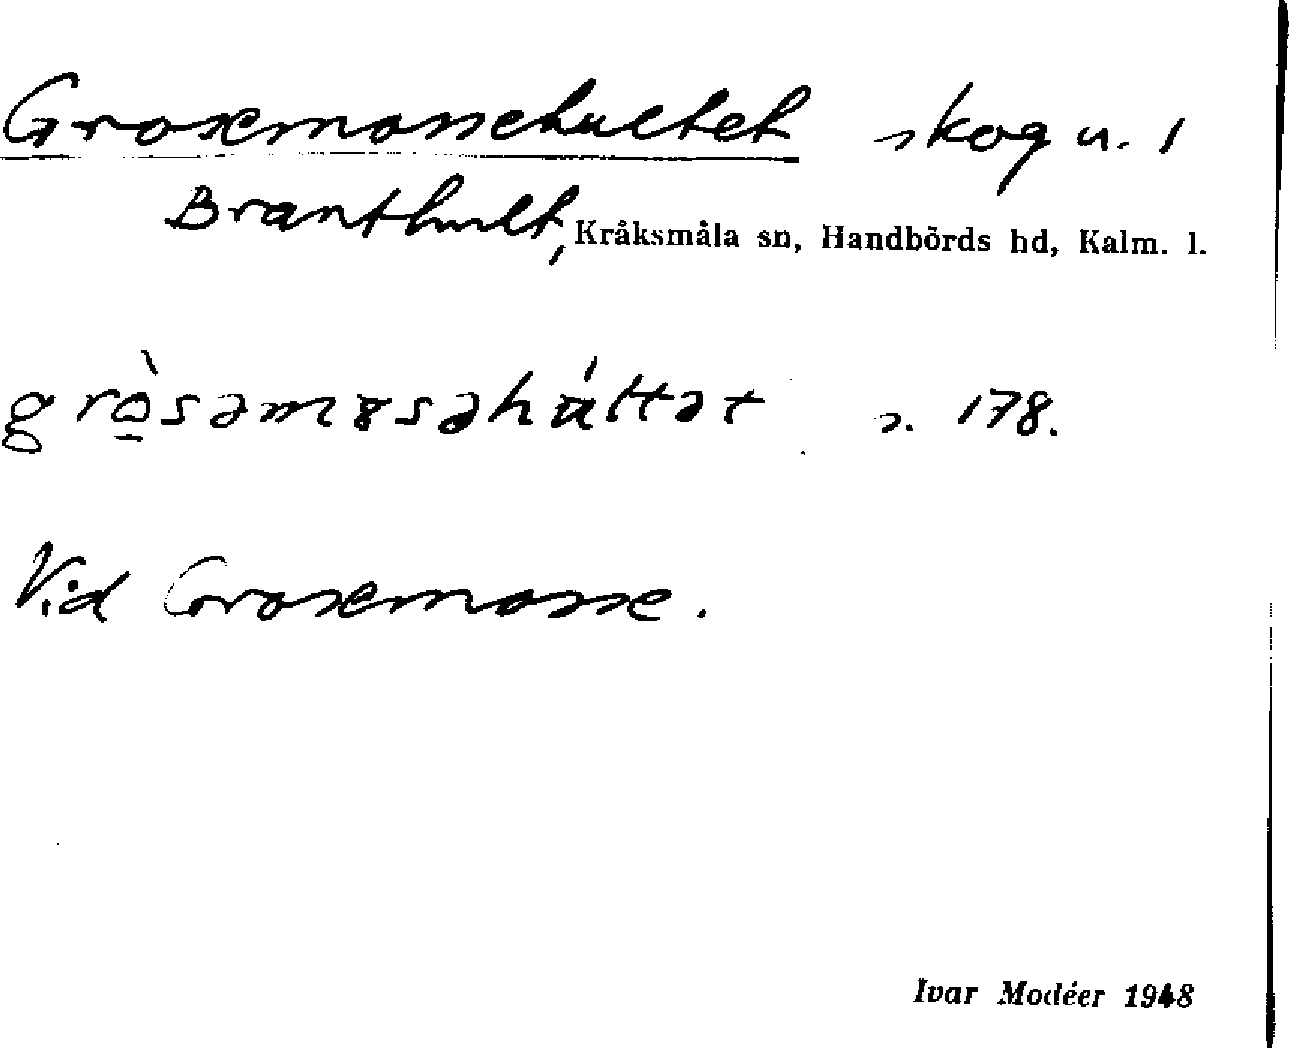 Grosemossehultet skog u. 1
Branthult, Kråksmåla sn, Handbörds hd, Kalm. l.
grò̱səmɤsəhúltət s. 178.
Vid Grosemosse.
Ivar Modéer 1948